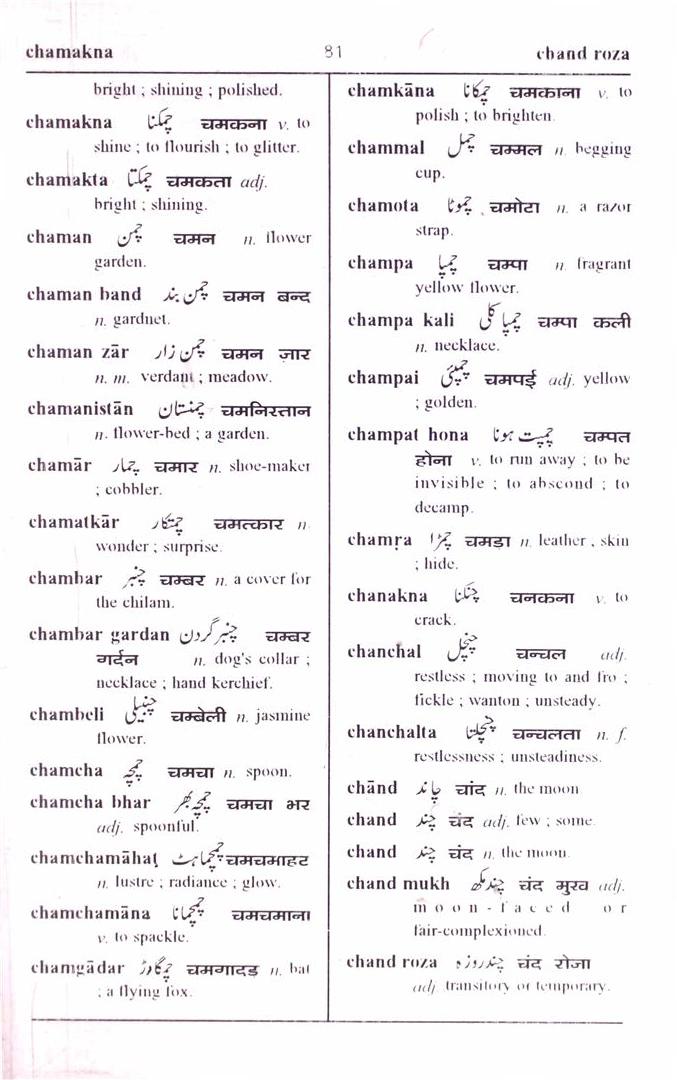 chamakna 81 chand roza
bright ; shining ; polished.
chamakna چمکنا चमकना v. to
shine ; to flourish ; to glitter.
chamakta چمکتا चमकता adj.
bright ; shining.
chaman چمن चमन n. flower
garden.
chaman band چمن بند चमन बन्द
n. gardnet.
chaman zār چمن زار चमन ज़ार
n. m. verdant ; meadow.
chamanistān چمنستان चमनिस्तान
n. flower-bed ; a garden.
chamār چمار चमार n. shoe-maker
; cobbler.
chamatkār چمتکار चमत्कार n.
wonder ; surprise.
chambar چنبر चम्बर n. a cover for
the chilam.
chambar gardan چنبر گردن चम्बर
गर्दन n. dog's collar ;
necklace ; hand kerchief.
chambeli چنبیلی चम्बेली n. jasmine
flower.
chamcha چمچہ चमचा n. spoon.
chamcha bhar چمچہ بھر चमचा भर
adj. spoonful.
chamchamāhaṭ چمچماہٹ चमचमाहट
n. lustre ; radiance ; glow.
chamchamāna چمچمانا चमचमाना
v. to spackle.
chamgādar چمگادڑ चमगादड़ n. bat
; a flying fox.
chamkāna چمکانا चमकाना v. to
polish ; to brighten.
chammal چمل चम्मल n. begging
cup.
chamota چموٹا चमोटा n. a razor
strap.
champa چمپا चम्पा n. fragrant
yellow flower.
champa kali چمپا کلی चम्पा कली
n. necklace.
champai چمپئی चमपई adj. yellow
; golden.
champat hona چمپت ہونا चम्पत
होना v. to run away ; to be
invisible ; to abscond ; to
decamp.
chamṛa چمڑا चमड़ा n. leather , skin
; hide.
chanakna چنکنا चनकना v. to
crack.
chanchal چنچل चन्चल adj.
restless ; moving to and fro ;
fickle ; wanton ; unsteady.
chanchalta چنچلتا चन्चलता n. f.
restlessness ; unsteadiness.
chānd چاند चांद n. the moon
chand چند चंद adj. few ; some.
chand چند चंद n. the moon.
chand mukh چند مکھ चंद मुख adj.
moon-faced or
fair-complexioned.
chand roza چند روزہ चंद रोजा
adj. transitory or temporary.